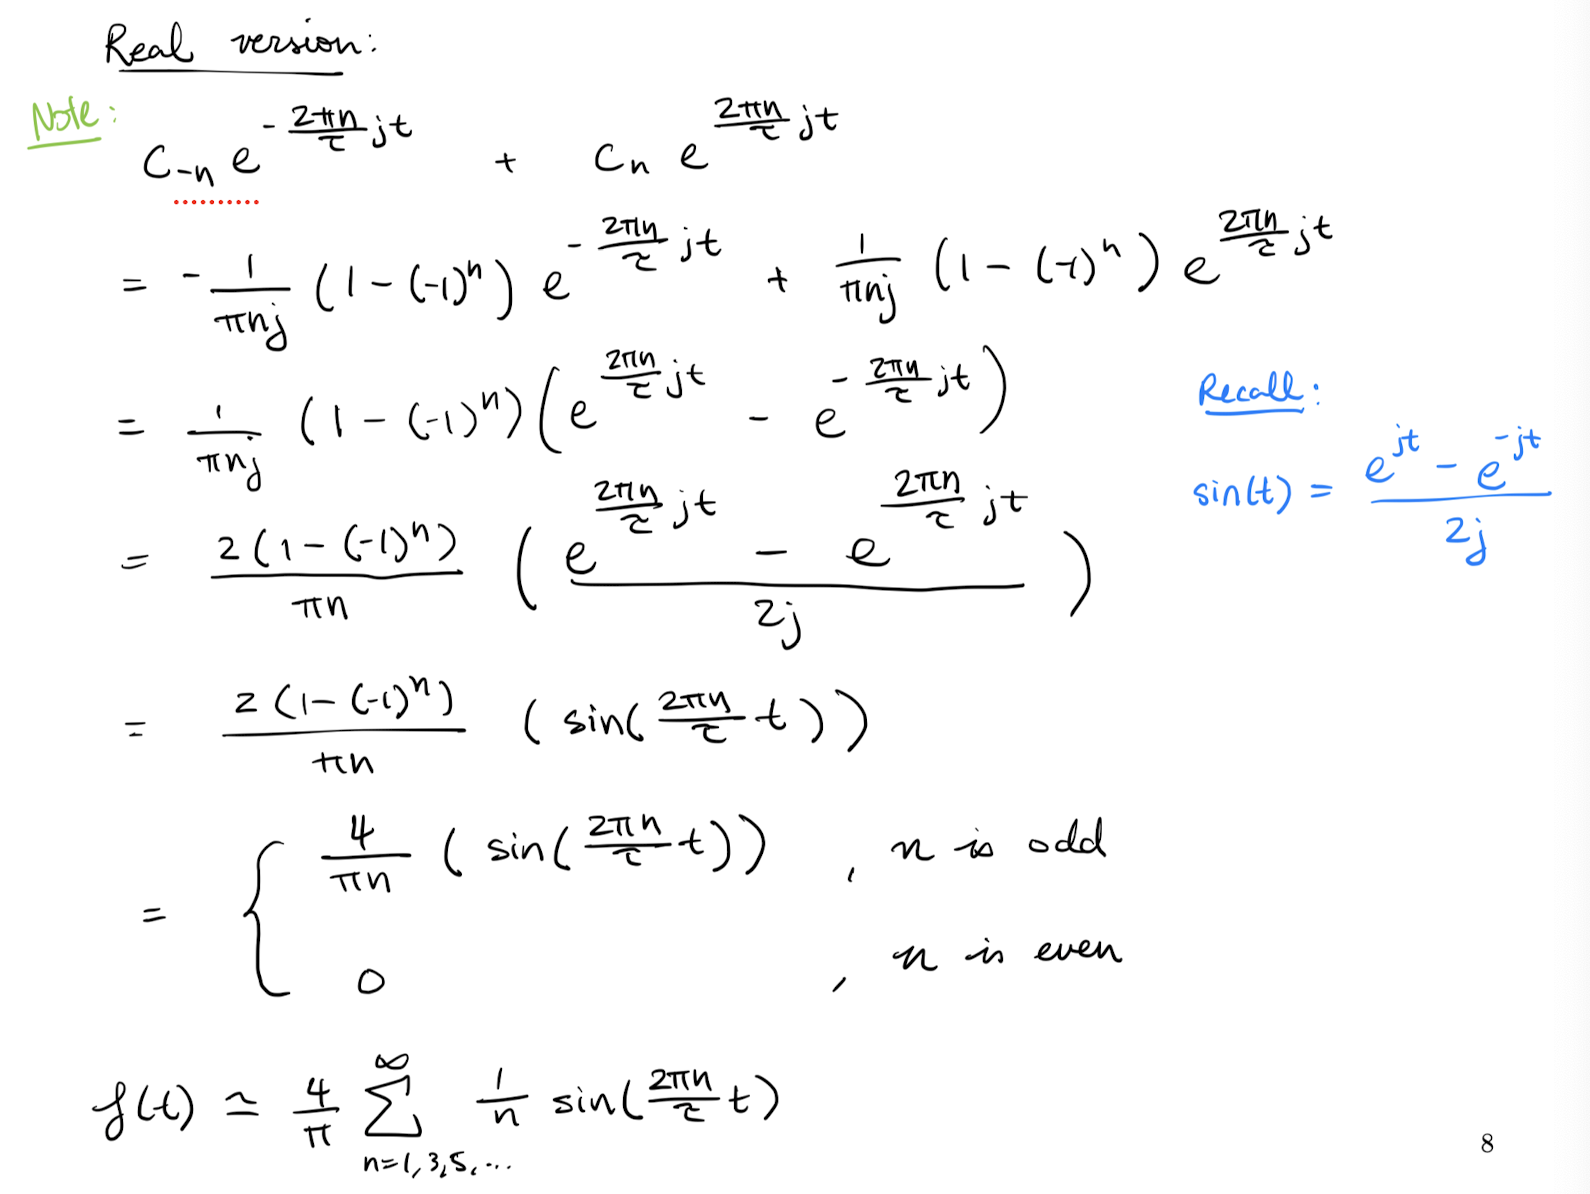 Real version:
Note:
C_{-n} e^{-\frac{2πn}{τ}jt} + C_n e^{\frac{2πn}{τ}jt}
= -\frac{1}{πnj} (1-(-1)^n) e^{-\frac{2πn}{τ}jt} + \frac{1}{πnj} (1-(-1)^n) e^{\frac{2πn}{τ}jt}
= \frac{1}{πnj} (1-(-1)^n) (e^{\frac{2πn}{τ}jt} - e^{-\frac{2πn}{τ}jt})
Recall:
sin(t) = \frac{e^{jt} - e^{-jt}}{2j}
= \frac{2(1-(-1)^n)}{πn} (\frac{e^{\frac{2πn}{τ}jt} - e^{\frac{2πn}{τ}jt}}{2j})
= \frac{2(1-(-1)^n)}{πn} (sin(\frac{2πn}{τ}t))
= { \frac{4}{πn} (sin(\frac{2πn}{τ}t)) , n is odd
0 , n is even
f(t) ≃ \frac{4}{π} \sum_{n=1,3,5,...}^{∞} \frac{1}{n} sin(\frac{2πn}{τ}t)
8